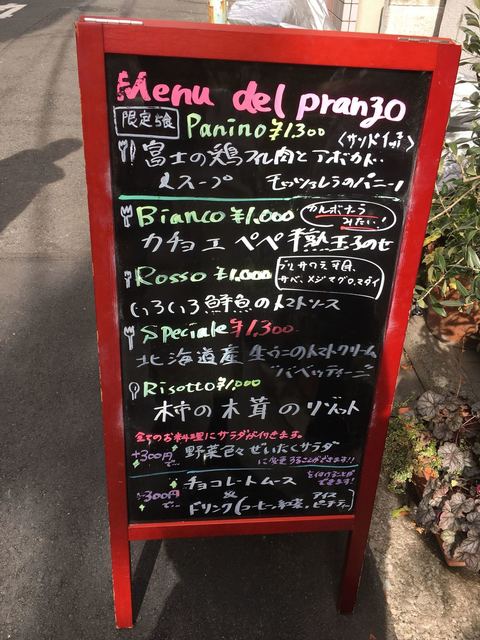 Menu del pranzo
限定5食 Panino ¥1.300 〈サンドイッチ〉
富士の鶏ムネ肉とアボカド、
&スープ モッツァレラのパニーノ
Bianco ¥1.000 カルボナーラみたい!
カチョエペペ 半熟玉子のせ
Rosso ¥1.000
サバ、メジマグロ、マダイ
いろいろ鮮魚のトマトソース
Speciale ¥1.300
北海道産 生うにのトマトクリーム
Risotto ¥1.000
柿の木茸のリゾット
全てのお料理にサラダが付きます。
+300円で… 野菜色々ぜいたくサラダ
に変更することができます!!
+300円で… チョコレートムース を付けることができます!
& ドリンク(コーヒー、紅茶、アイスピーチティー)